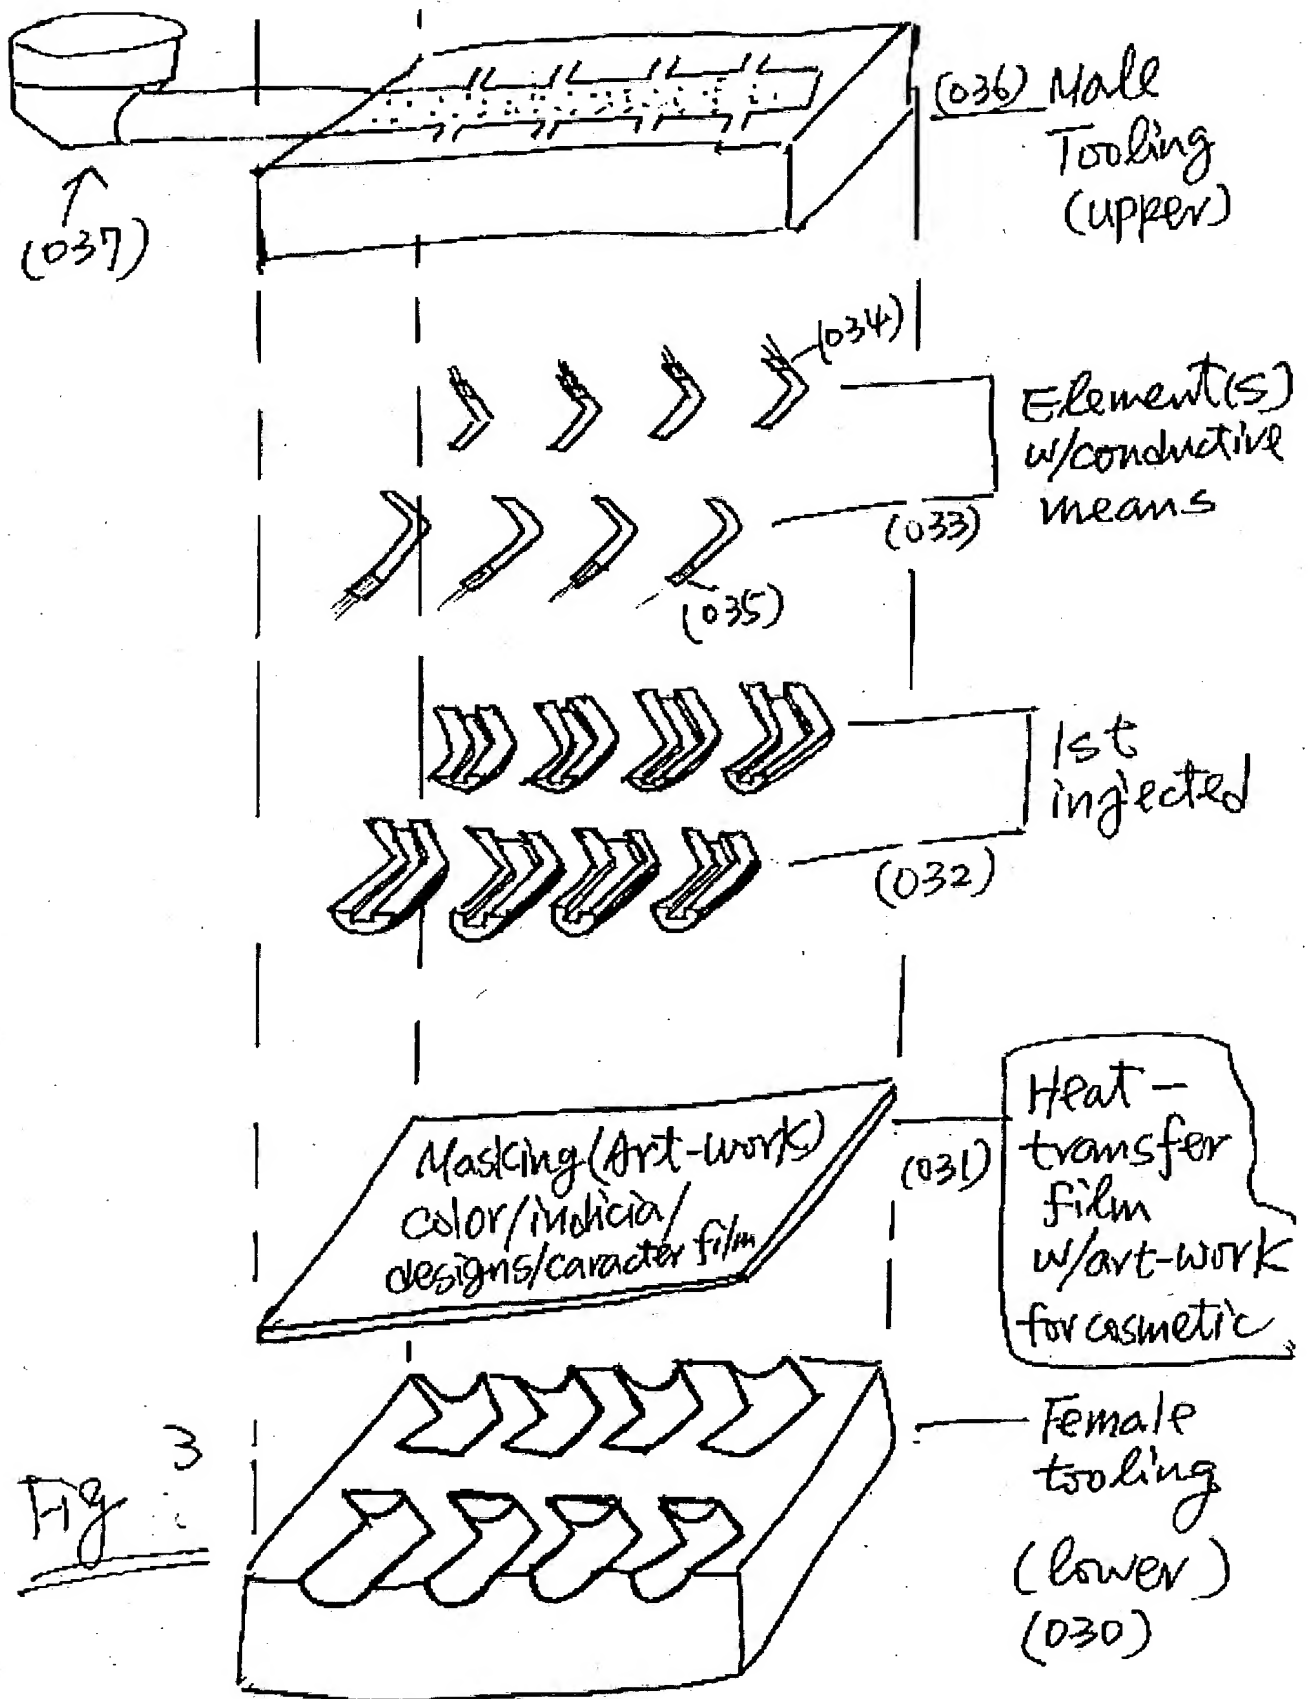 (036) Male
Tooling
(upper)
(037)
(034)
Element(s)
w/conductive
means
(033)
(035)
1st
ingjected
(032)
Masking (Art-work)
color/indicia/
designs/caracter film
(031)
Heat-
transfer
film
w/art-work
for cosmetic
Female
tooling
(lower)
(030)
Fig 3